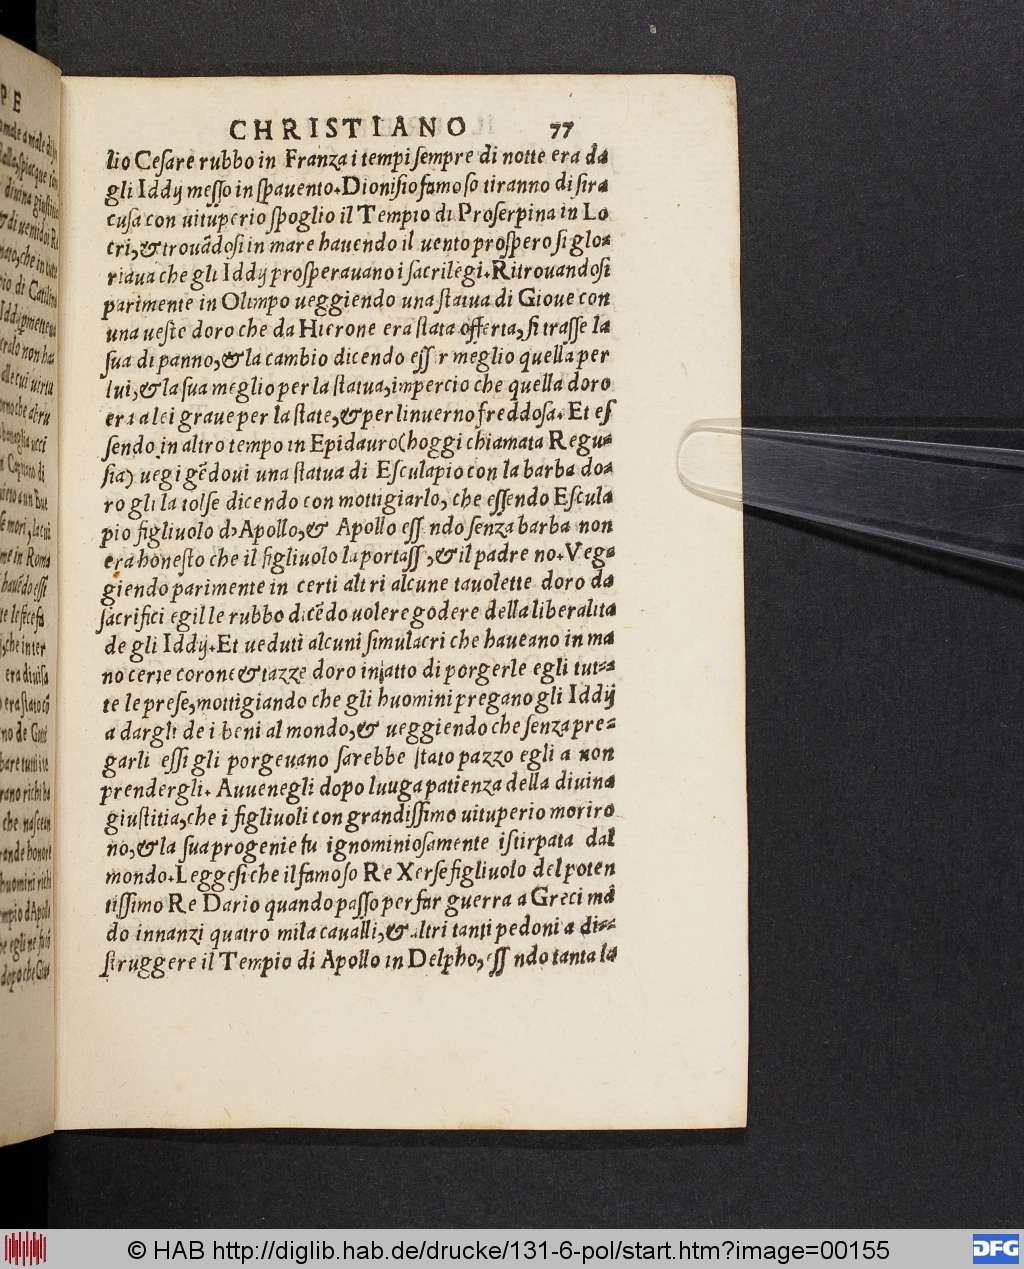 CHRISTIANO 77
lio Cesare rubbo in Franza i tempi sempre di notte era da
gli Iddij messo in spauento. Dionisio famoso tiranno di sira
cusa con uituperio spoglio il Tempio di Proserpina in Lo
cri, & trouādosi in mare hauendo il uento prospero si glo-
riaua che gli Iddij prosperauano i sacrilegi. Ritrouandosi
parimente in Olimpo ueggiendo una statua di Gioue con
una ueste doro che da Hierone era stata offerta, si trasse la
sua di panno, & la cambio dicendo esser meglio quella per
lui, & la sua meglio per la statua, impercio che quella doro
era a lei graue per la state, & per linuerno freddosa. Et es
sendo in altro tempo in Epidauro (hoggi chiamata Regu-
sia) uegigēdoui una statua di Esculapio con la barba do-
ro gli la tolse dicendo con mottigiarlo, che essendo Escula
pio figliuolo d'Apollo, & Apollo ess ndo senza barba non
era honesto che il figliuolo la portass , & il padre no. Veg-
giendo parimente in certi altri alcune tauolette doro da
sacrifici egil le rubbo dicēdo uolere godere della liberalita
de gli Iddij. Et ueduti alcuni simulacri che haueano in ma
no certe corone & tazze doro in atto di porgerle egli tut-
te le prese, mottigiando che gli huomini pregano gli Iddij
a dargli de i beni al mondo, & ueggiendo che senza pre-
garli essi gli porgeuano sarebbe stato pazzo egli a non
prendergli. Auuenegli dopo luuga patienza della diuina
giustitia, che i figliuoli con grandissimo uituperio moriro
no, & la sua progenie fu ignominiosamente istirpata dal
mondo. Leggesi che il famoso Re Xerse figliuolo del poten
tissimo Re Dario quando passo per far guerra a Greci mā
do innanzi quatro mila caualli, & altri tanti pedoni a di-
struggere il Tempio di Apollo in Delpho, ess ndo tanta la
© HAB http://diglib.hab.de/drucke/131-6-pol/start.htm?image=00155
DFG